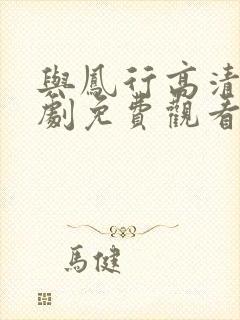 與鳳行高清
劇免費觀看
馬健